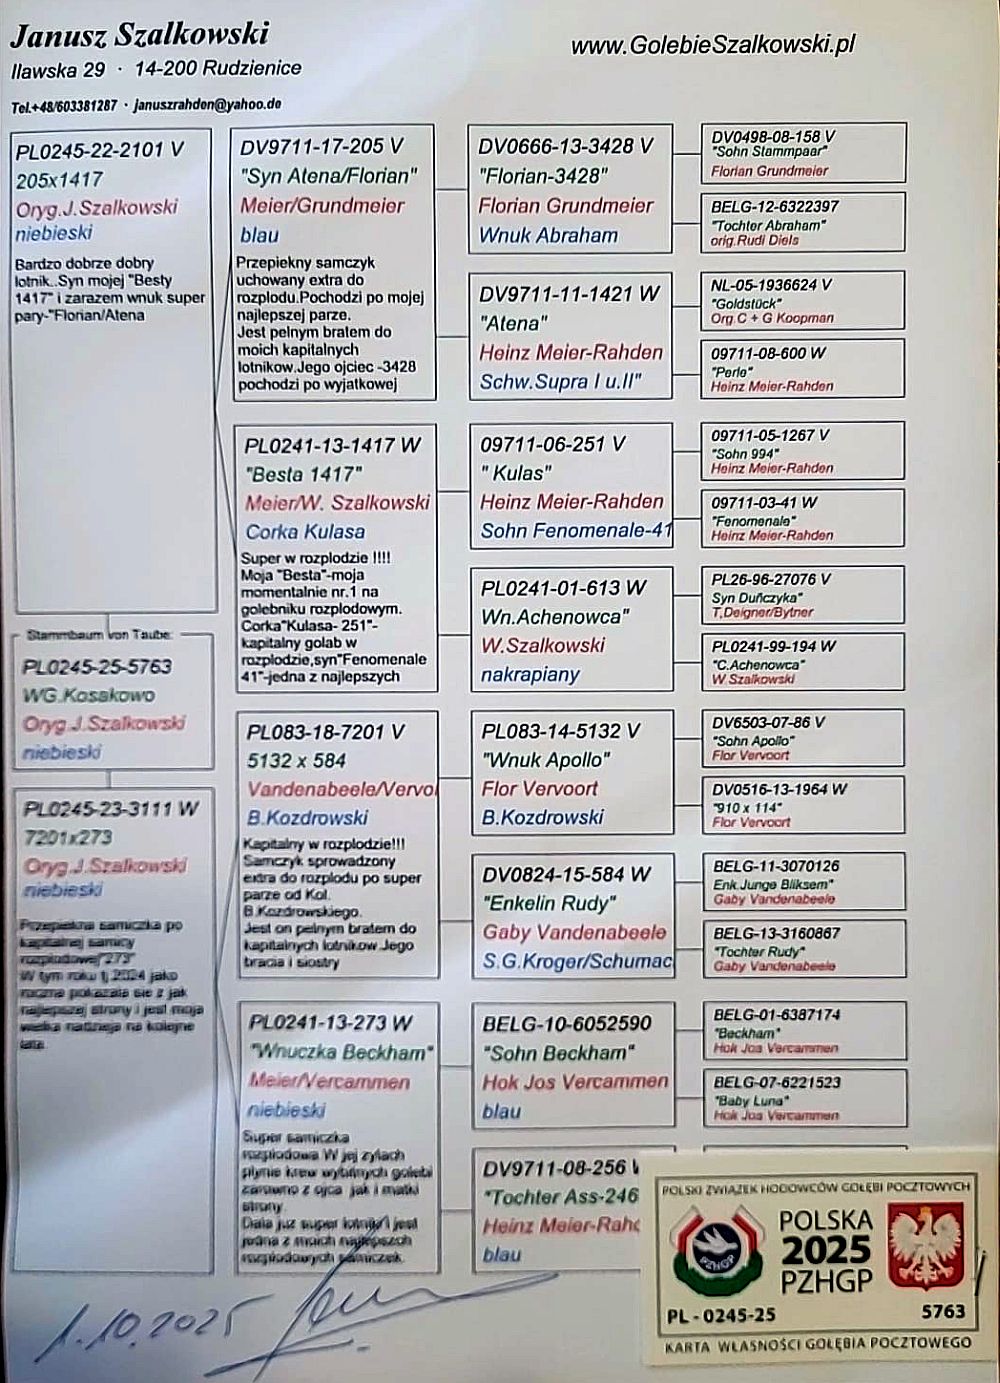 Janusz Szalkowski
www.GolebieSzalkowski.pl
Ilawska 29 · 14-200 Rudzienice
Tel.+48/603381287 · januszrahden@yahoo.de
PL0245-22-2101 V
205x1417
Oryg.J.Szalkowski
niebieski
Bardzo dobrze dobry
lotnik..Syn mojej "Besty
1417" i zarazem wnuk super
pary-"Florian/Atena
Stammbaum von Taube:
PL0245-25-5763
WG.Kosakowo
Oryg.J.Szalkowski
niebieski
PL0245-23-3111 W
7201x273
Oryg.J.Szalkowski
niebieski
Przepiekna samiczka po
kapitalnej samicy
rozplodowej"273"
W tym roku tj.2024 jako
roczna pokazala sie z jak
najlepszej strony i jest moja
wielka nadzieja na kolejne
lata.
DV9711-17-205 V
"Syn Atena/Florian"
Meier/Grundmeier
blau
Przepiekny samczyk
uchowany extra do
rozplodu.Pochodzi po mojej
najlepszej parze.
Jest pelnym bratem do
moich kapitalnych
lotnikow.Jego ojciec -3428
pochodzi po wyjatkowej
PL0241-13-1417 W
"Besta 1417"
Meier/W. Szalkowski
Corka Kulasa
Super w rozplodzie !!!!
Moja "Besta"-moja
momentalnie nr.1 na
golebniku rozplodowym.
Corka"Kulasa- 251"-
kapitalny golab w
rozplodzie,syn"Fenomenale
41"-jedna z najlepszych
PL083-18-7201 V
5132 x 584
Vandenabeele/Vervo
B.Kozdrowski
Kapitalny w rozplodzie!!!
Samczyk sprowadzony
extra do rozplodu po super
parze od Kol.
B.Kozdrowskiego.
Jest on pelnym bratem do
kapitalnych lotnikow.Jego
bracia i siostry
PL0241-13-273 W
"Wnuczka Beckham"
Meier/Vercammen
niebieski
Super samiczka
rozplodowa.W jej zylach
plynie krew wybitnych golebi
zarowno z ojca jak i matki
strony.
Dala juz super lotniki i jest
jedna z moich najlepszch
rozplodowych samiczek.
DV0666-13-3428 V
"Florian-3428"
Florian Grundmeier
Wnuk Abraham
DV9711-11-1421 W
"Atena"
Heinz Meier-Rahden
Schw.Supra I u.II"
09711-06-251 V
" Kulas"
Heinz Meier-Rahden
Sohn Fenomenale-41
PL0241-01-613 W
Wn.Achenowca"
W.Szalkowski
nakrapiany
PL083-14-5132 V
"Wnuk Apollo"
Flor Vervoort
B.Kozdrowski
DV0824-15-584 W
"Enkelin Rudy"
Gaby Vandenabeele
S.G.Kroger/Schumac
BELG-10-6052590
"Sohn Beckham"
Hok Jos Vercammen
blau
DV9711-08-256
"Tochter Ass-246
Heinz Meier-Rahd
blau
DV0498-08-158 V
"Sohn Stammpaar"
Florian Grundmeier
BELG-12-6322397
"Tochter Abraham"
orig.Rudi Diels
NL-05-1936624 V
"Goldstück"
Org.C + G Koopman
09711-08-600 W
"Perle"
Heinz Meier-Rahden
09711-05-1267 V
"Sohn 994"
Heinz Meier-Rahden
09711-03-41 W
"Fenomenale"
Heinz Meier-Rahden
PL26-96-27076 V
Syn Duńczyka"
T,Deigner/Bytner
PL0241-99-194 W
"C.Achenowca"
W.Szalkowski
DV6503-07-86 V
"Sohn Apollo"
Flor Vervoort
DV0516-13-1964 W
"910 x 114"
Flor Vervoort
BELG-11-3070126
Enk.Junge Bliksem"
Gaby Vandenabeele
BELG-13-3160867
"Tochter Rudy"
Gaby Vandenabeele
BELG-01-6387174
"Beckham"
Hok Jos Vercammen
BELG-07-6221523
"Baby Luna"
Hok Jos Vercammen
POLSKI ZWIĄZEK HODOWCÓW GOŁĘBI POCZTOWYCH
PZHGP
POLSKA
2025
PZHGP
PL - 0245-25
5763
KARTA WŁASNOŚCI GOŁĘBIA POCZTOWEGO
1.10.2025